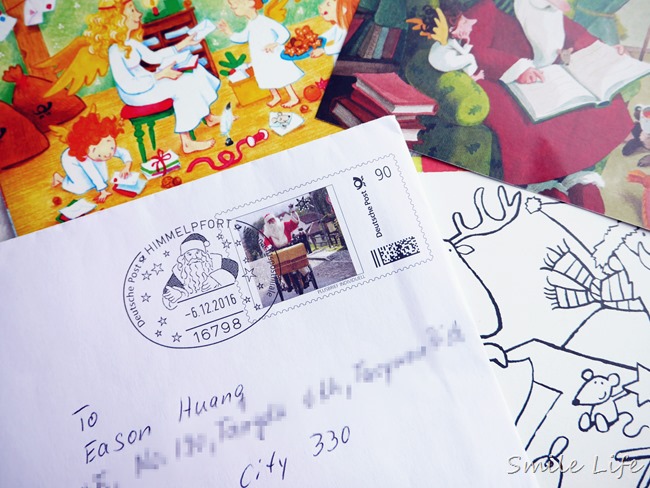 Deutsche Post HIMMELPFORT
-6.12.2016
16798
Deutsche Post 90
PLUSBRIEF INDIVIDUELL
To
Eason Huang
City 330
Smile Life